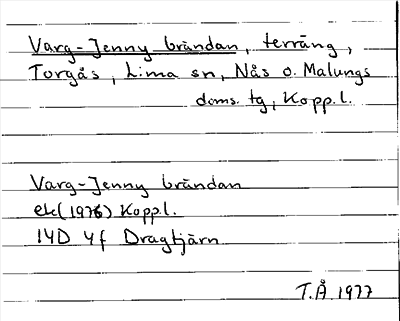 Varg-Jenny brändan, terräng,
Torgås, Lima sn, Nås o. Malungs
doms. tg, Kopp.l.
Varg-Jenny brändan
ek(1976) Kopp.l.
14D 4f Dragtjärn
T.Å. 1977